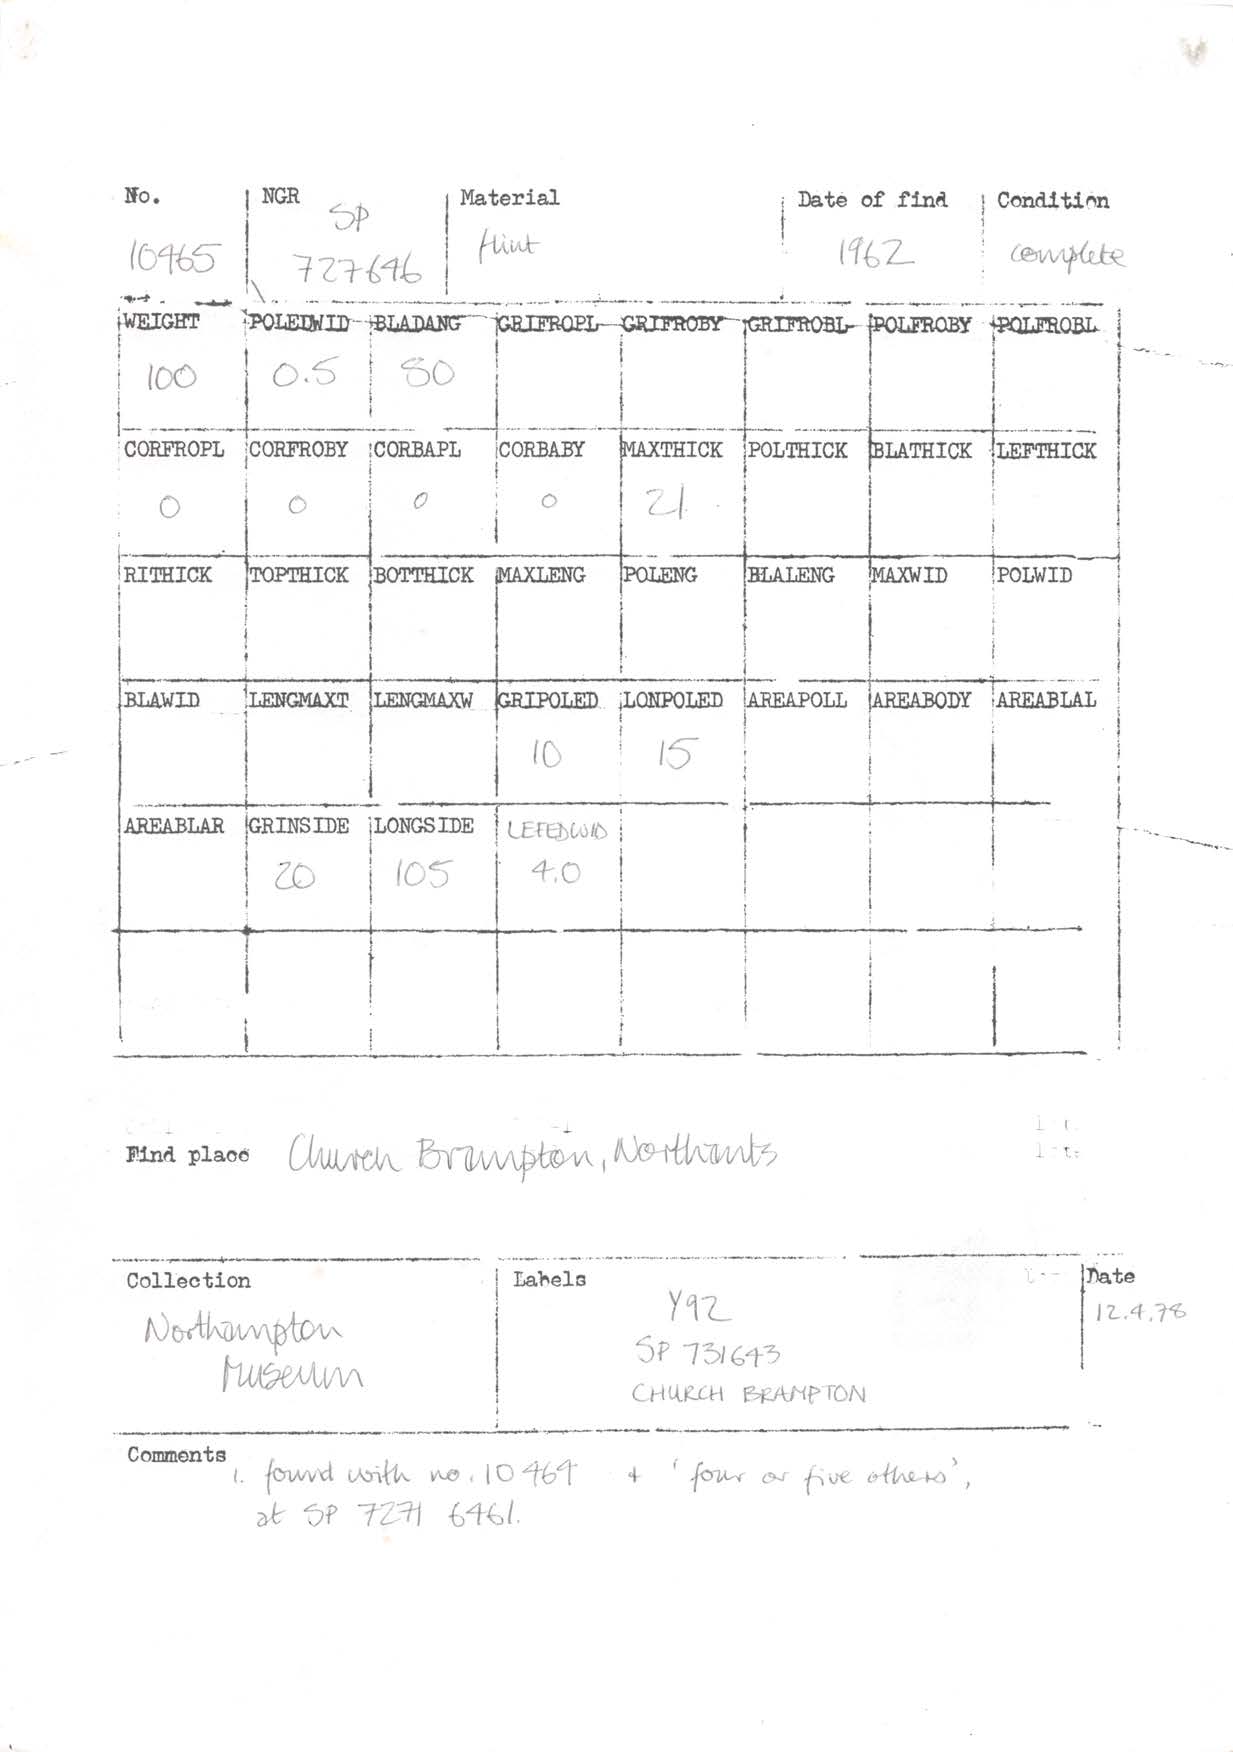 No. NGR Material Date of find Condition
SP
10465 727646 flint 1962 complete
WEIGHT POLEDWID BLADANG GRIFROPL GRIFROBY GRIFROBL POLFROBY POLFROBL
100 0.5 80
CORFROPL CORFROBY CORBAPL CORBABY MAXTHICK POLTHICK BLATHICK LEFTHICK
0 0 0 0 21
RITHICK TOPTHICK BOTTHICK MAXLENG POLENG BLALENG MAXWID POLWID
BLAWID LENGMAXT LENGMAXW GRIPOLED LONPOLED AREAPOLL AREABODY AREABLAL
10 15
AREABLAR GRINSIDE LONGSIDE LEFEDWID
20 105 4.0
Find place Church Brampton, Northants
Collection Labels Date
Northampton
Museum
Y92
SP 731643
CHURCH BRAMPTON
12.4.78
Comments
1. found with no. 10464 + 'four or five others',
at SP 7271 6461.